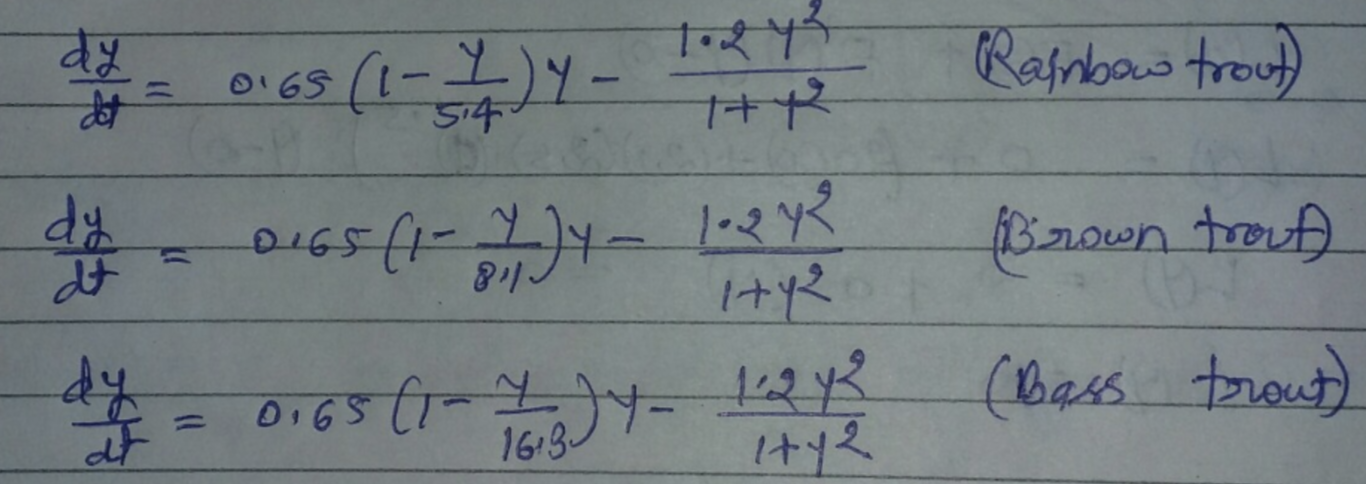 dy/dt = 0.65 (1 - y/5.4) y - 1.2 y²/1+y² (Rainbow trout)
dy/dt = 0.65 (1 - y/8.1) y - 1.2 y²/1+y² (Brown trout)
dy/dt = 0.65 (1 - y/16.3) y - 1.2 y²/1+y² (Bass trout)